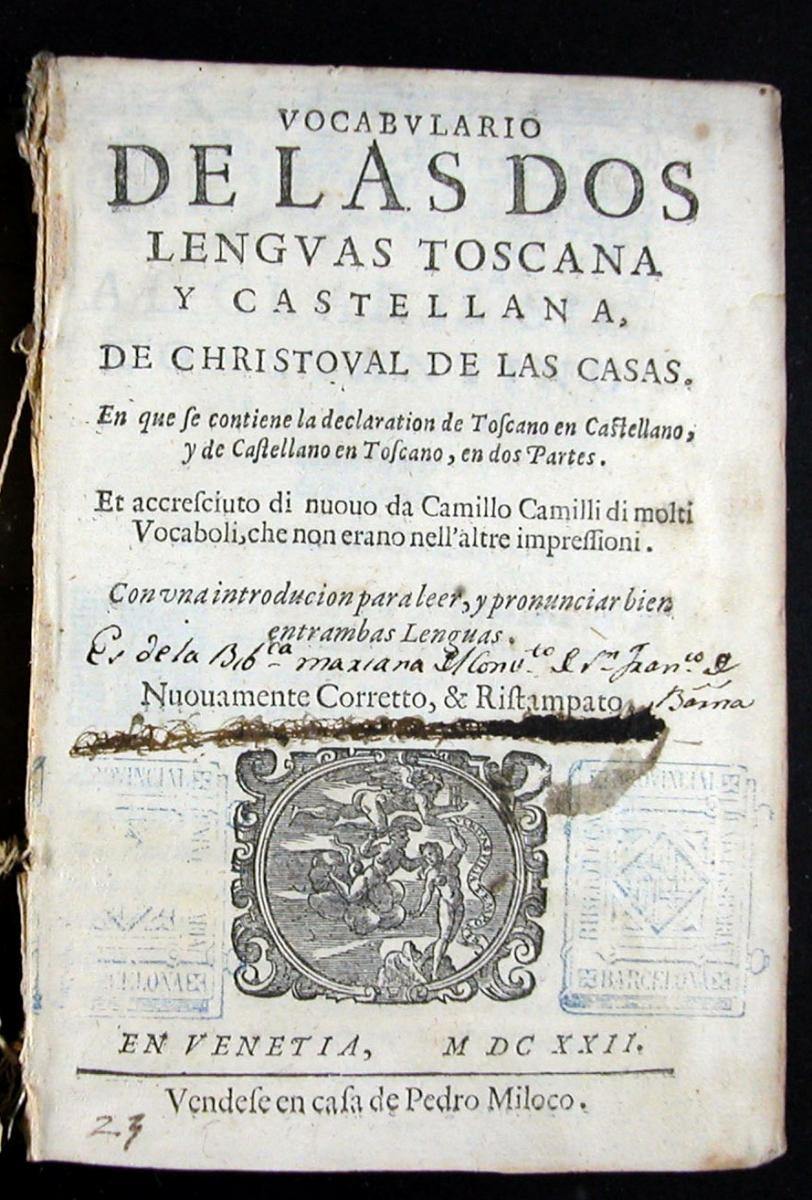 VOCABVLARIO
DE LAS DOS
LENGVAS TOSCANA
Y CASTELLANA,
DE CHRISTOVAL DE LAS CASAS.
En que ſe contiene la declaration de Toſcano en Caſtellano,
y de Caſtellano en Toſcano, en dos Partes.
Et accreſciuto di nuouo da Camillo Camilli di molti
Vocaboli, che non erano nell'altre impreſſioni.
Con vna introducion para leer, y pronunciar bien
entrambas Lenguas.
Es de la Bib.ca mariana del Conv.to de S.n Fran.co de
Barna
Nuouamente Corretto, & Riſtampato.
BARCELONA
EN VENETIA, M DC XXII.
Vendeſe en caſa de Pedro Miloco.
23